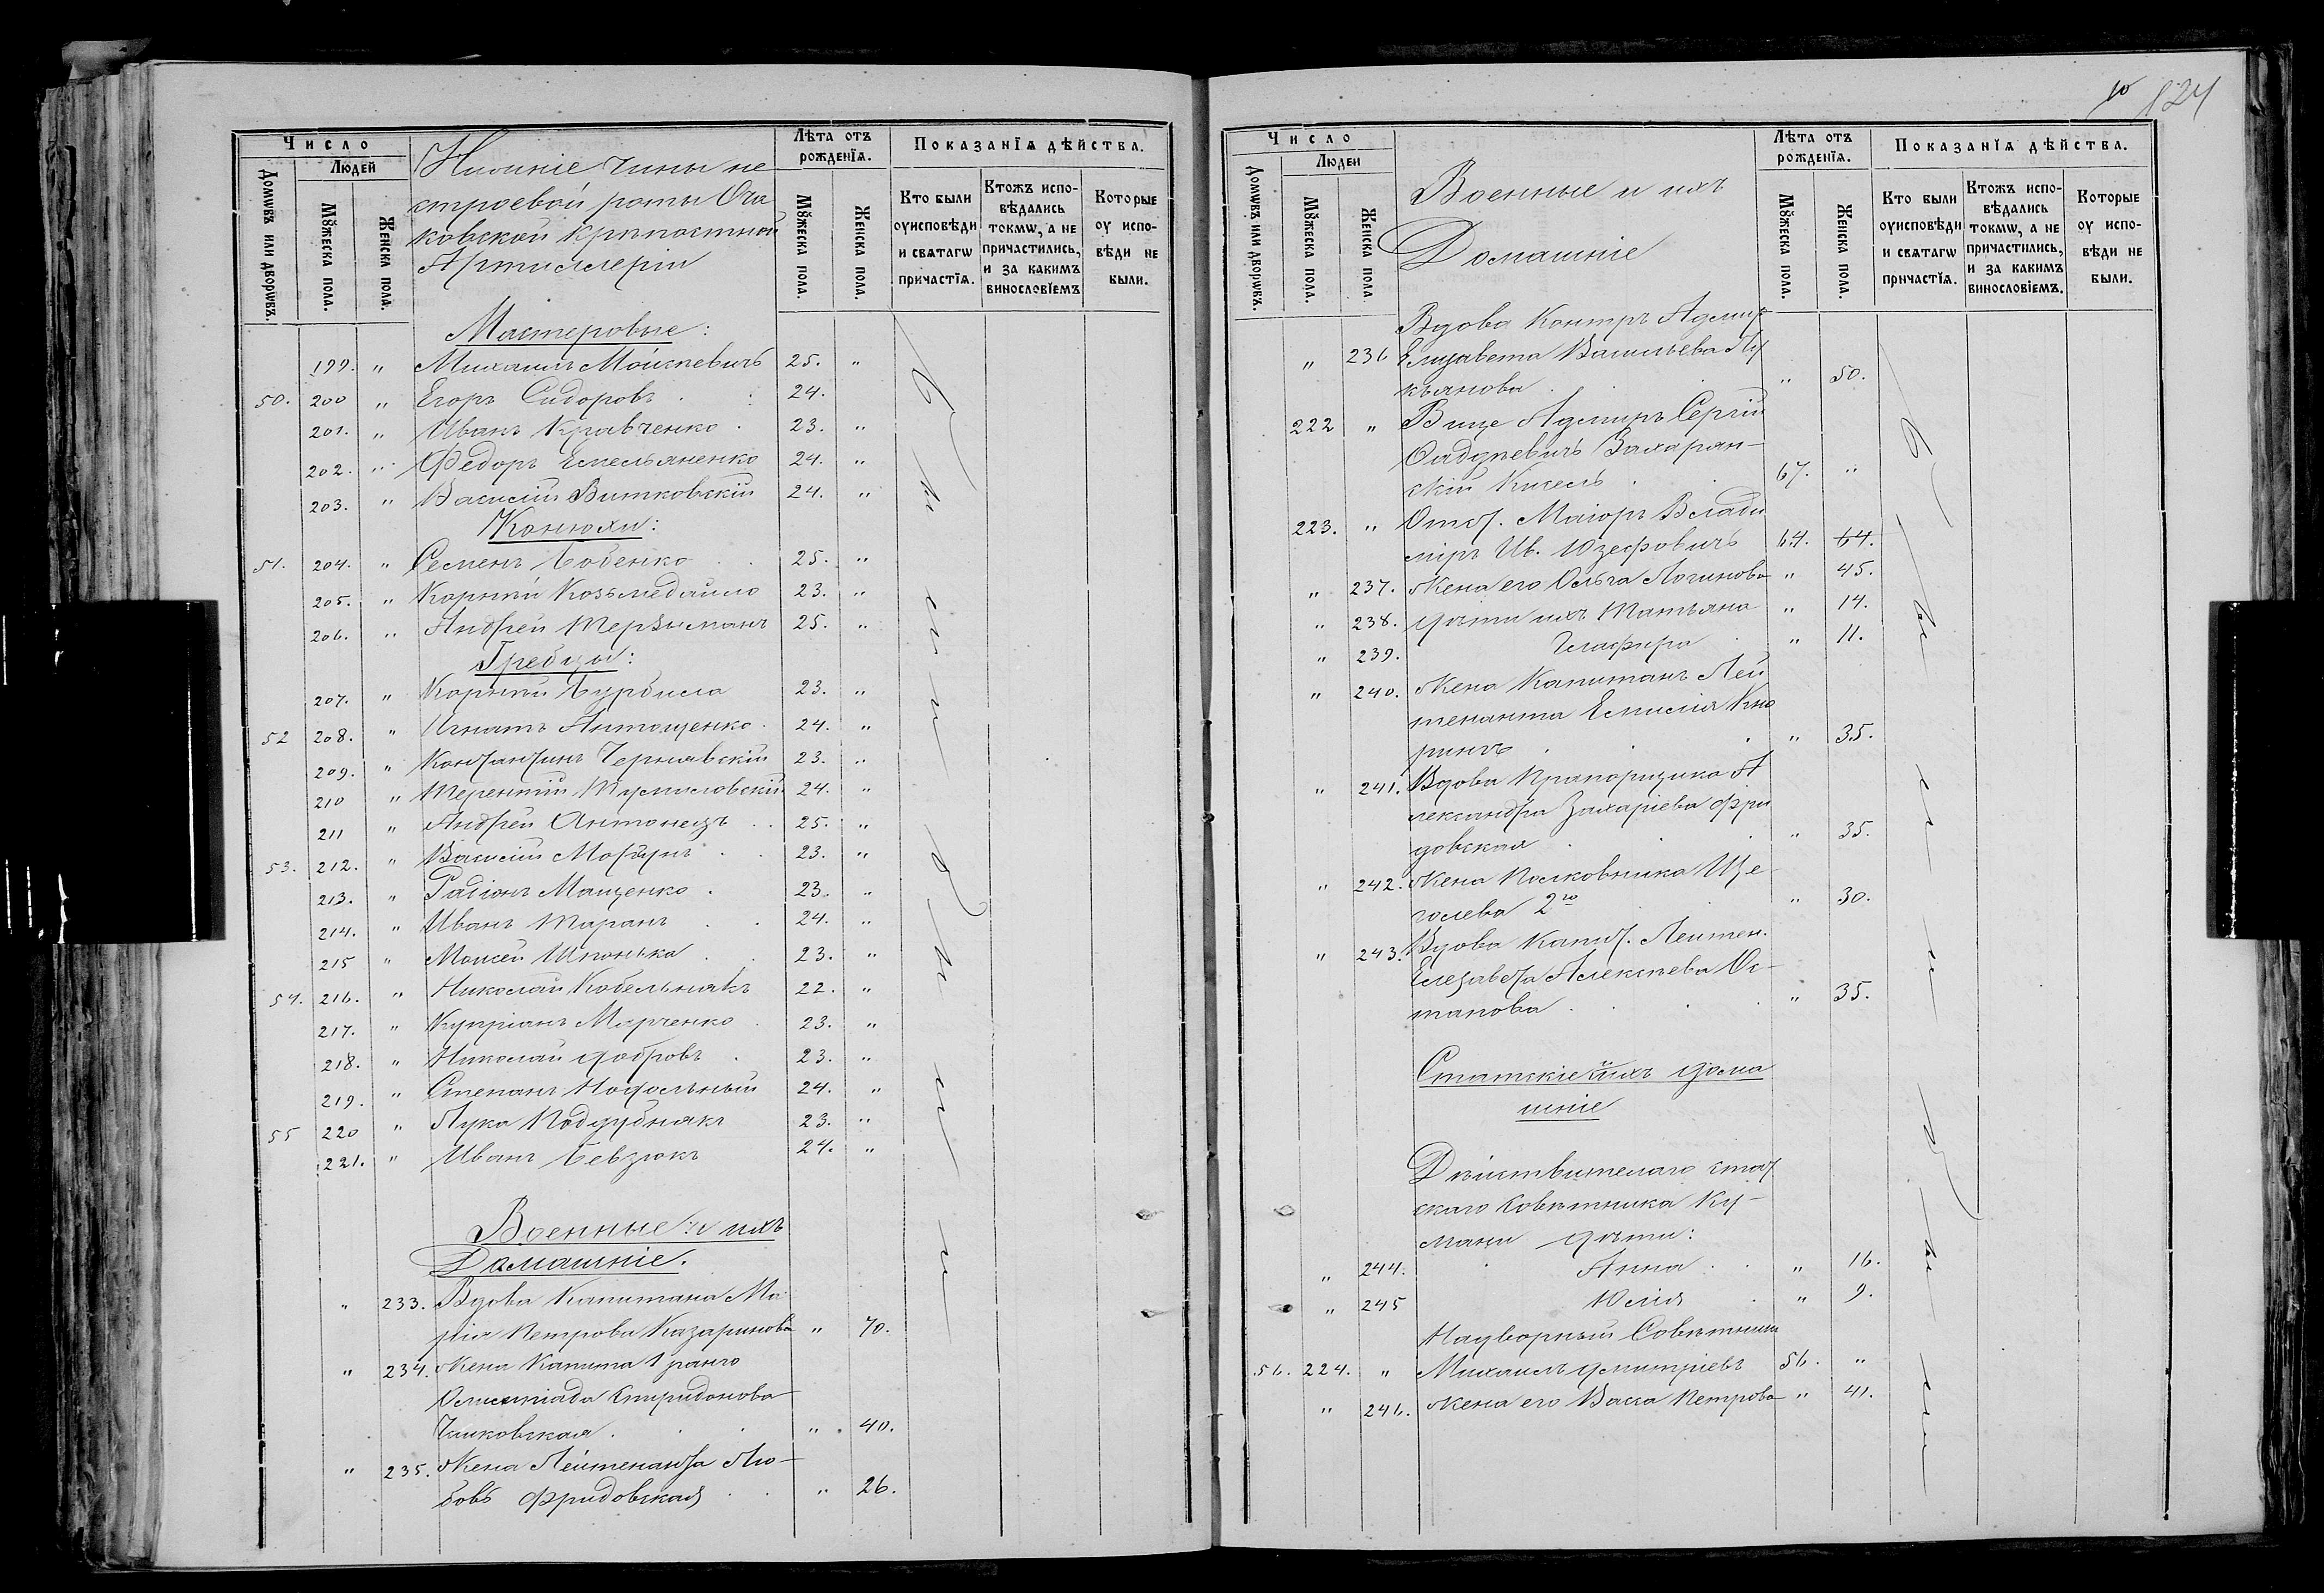 Число
Людей
Домѡвъ или дворѡвъ.
Мꙋжеска пола.
Женска пола.
Нижніе чины не
строевой роты Оча
ковской крѣпостной
Артиллеріи
Лѣта отъ
рожденїѧ.
Мꙋжеска пола.
Женска пола.
Показанїѧ дѣйства.
Кто были
оуисповѣди
и свѧтагѡ
причастїѧ.
Ктожъ испо-
вѣдались
токмѡ, а не
причастились,
и за какимъ
винословїемъ
Которые
оу испо-
вѣди не
были.
Мастеровые:
199. " Михаилъ Мойсеевичъ 25. "
50. 200 " Егоръ Сидоровъ 24.
201. " Иванъ Кравченко 23. "
202. " Федоръ Емельяненко 24. "
203. " Василій Витковскій 24. "
Конюхи:
51. 204. " Семенъ Бобенко 25. "
205. " Корнѣй 23. "
206. " Андрей 25. "
Гребцы:
207. " Корнѣй Бурбила 23. "
52 208. " Игнатъ Антощенко 24. "
209. " Константинъ Чернявскій 23. "
210 " Терентій 24. "
211 " Андрей Антонецъ 25. "
53. 212. " Василій 23. "
213. " Радіонъ Мащенко 23. "
214. " Иванъ Таранъ 24. "
215 " Моисей Шпонька 23. "
54. 216. " Николай Кобельнякъ 22. "
217. " Купріанъ Марченко 23. "
218. " Николай Добровъ 23. "
219. " Степанъ 24. "
55 220 " Лука Поддубнякъ 23. "
221. " Иванъ Бевзюкъ 24. "
Военные и ихъ
Домашніе.
" 233. Вдова Капитана Ма
рія Петрова Казаринова " 70.
" 234. Жена Капита 1 ранга
Олимпіада Спиридонова
" 40.
" 235. Жена Лейтенанта Лю-
бовь Фридовская " 26.
Были у и
10 124
Число
Людей
Домѡвъ или дворѡвъ.
Мꙋжеска пола.
Женска пола
Военные и ихъ
Домашніе
Лѣта отъ
рожденїѧ.
Мꙋжеска пола.
Женска пола.
Показанїѧ дѣйства.
Кто были
оуисповѣди
и свѧтагѡ
причастїѧ.
Ктожъ испо-
вѣдались
токмѡ, а не
причастились,
и за какимъ
винословїемъ.
Которые
оу испо-
вѣди не
были.
Вдова Контръ Адмир
" 236 Елизавета Васильева Лу
кьянова " 50.
222 " Вице Адмиръ Сергій
Фадѣевичъ Захарян-
скій Кисель 67. "
223. " Отст. Маіоръ Влади
міръ Ив. Юзефовичъ 64. 64.
" 237. Жена его Ольга Логинова " 45.
" 238. Дѣти ихъ Татьяна " 14.
" 239. Глафира " 11.
" 240. Жена Капитанъ Лей
тенанта Емилія Кно
рингъ " 35.
" 241. Вдова Прапорщика А
лександра Захаріева Фри
довская " 35.
" 242. Жена Полковника Ще-
голева 2го " 30.
" 243. Вдова Капит. Лейтен.
Елезавета Алексѣева Ос-
тапова " 35.
Статскіе и ихъ Дома
шніе
Дѣйствителаго стат
скаго Совѣтника Ку-
мани Дѣти:
" 244. Анна " 16.
" 245 Юлія " 9.
Надворный Совѣтникъ
56. 224. " Михаилъ Дмитріевъ 56. "
" 246. Жена его Васса Петрова " 41.